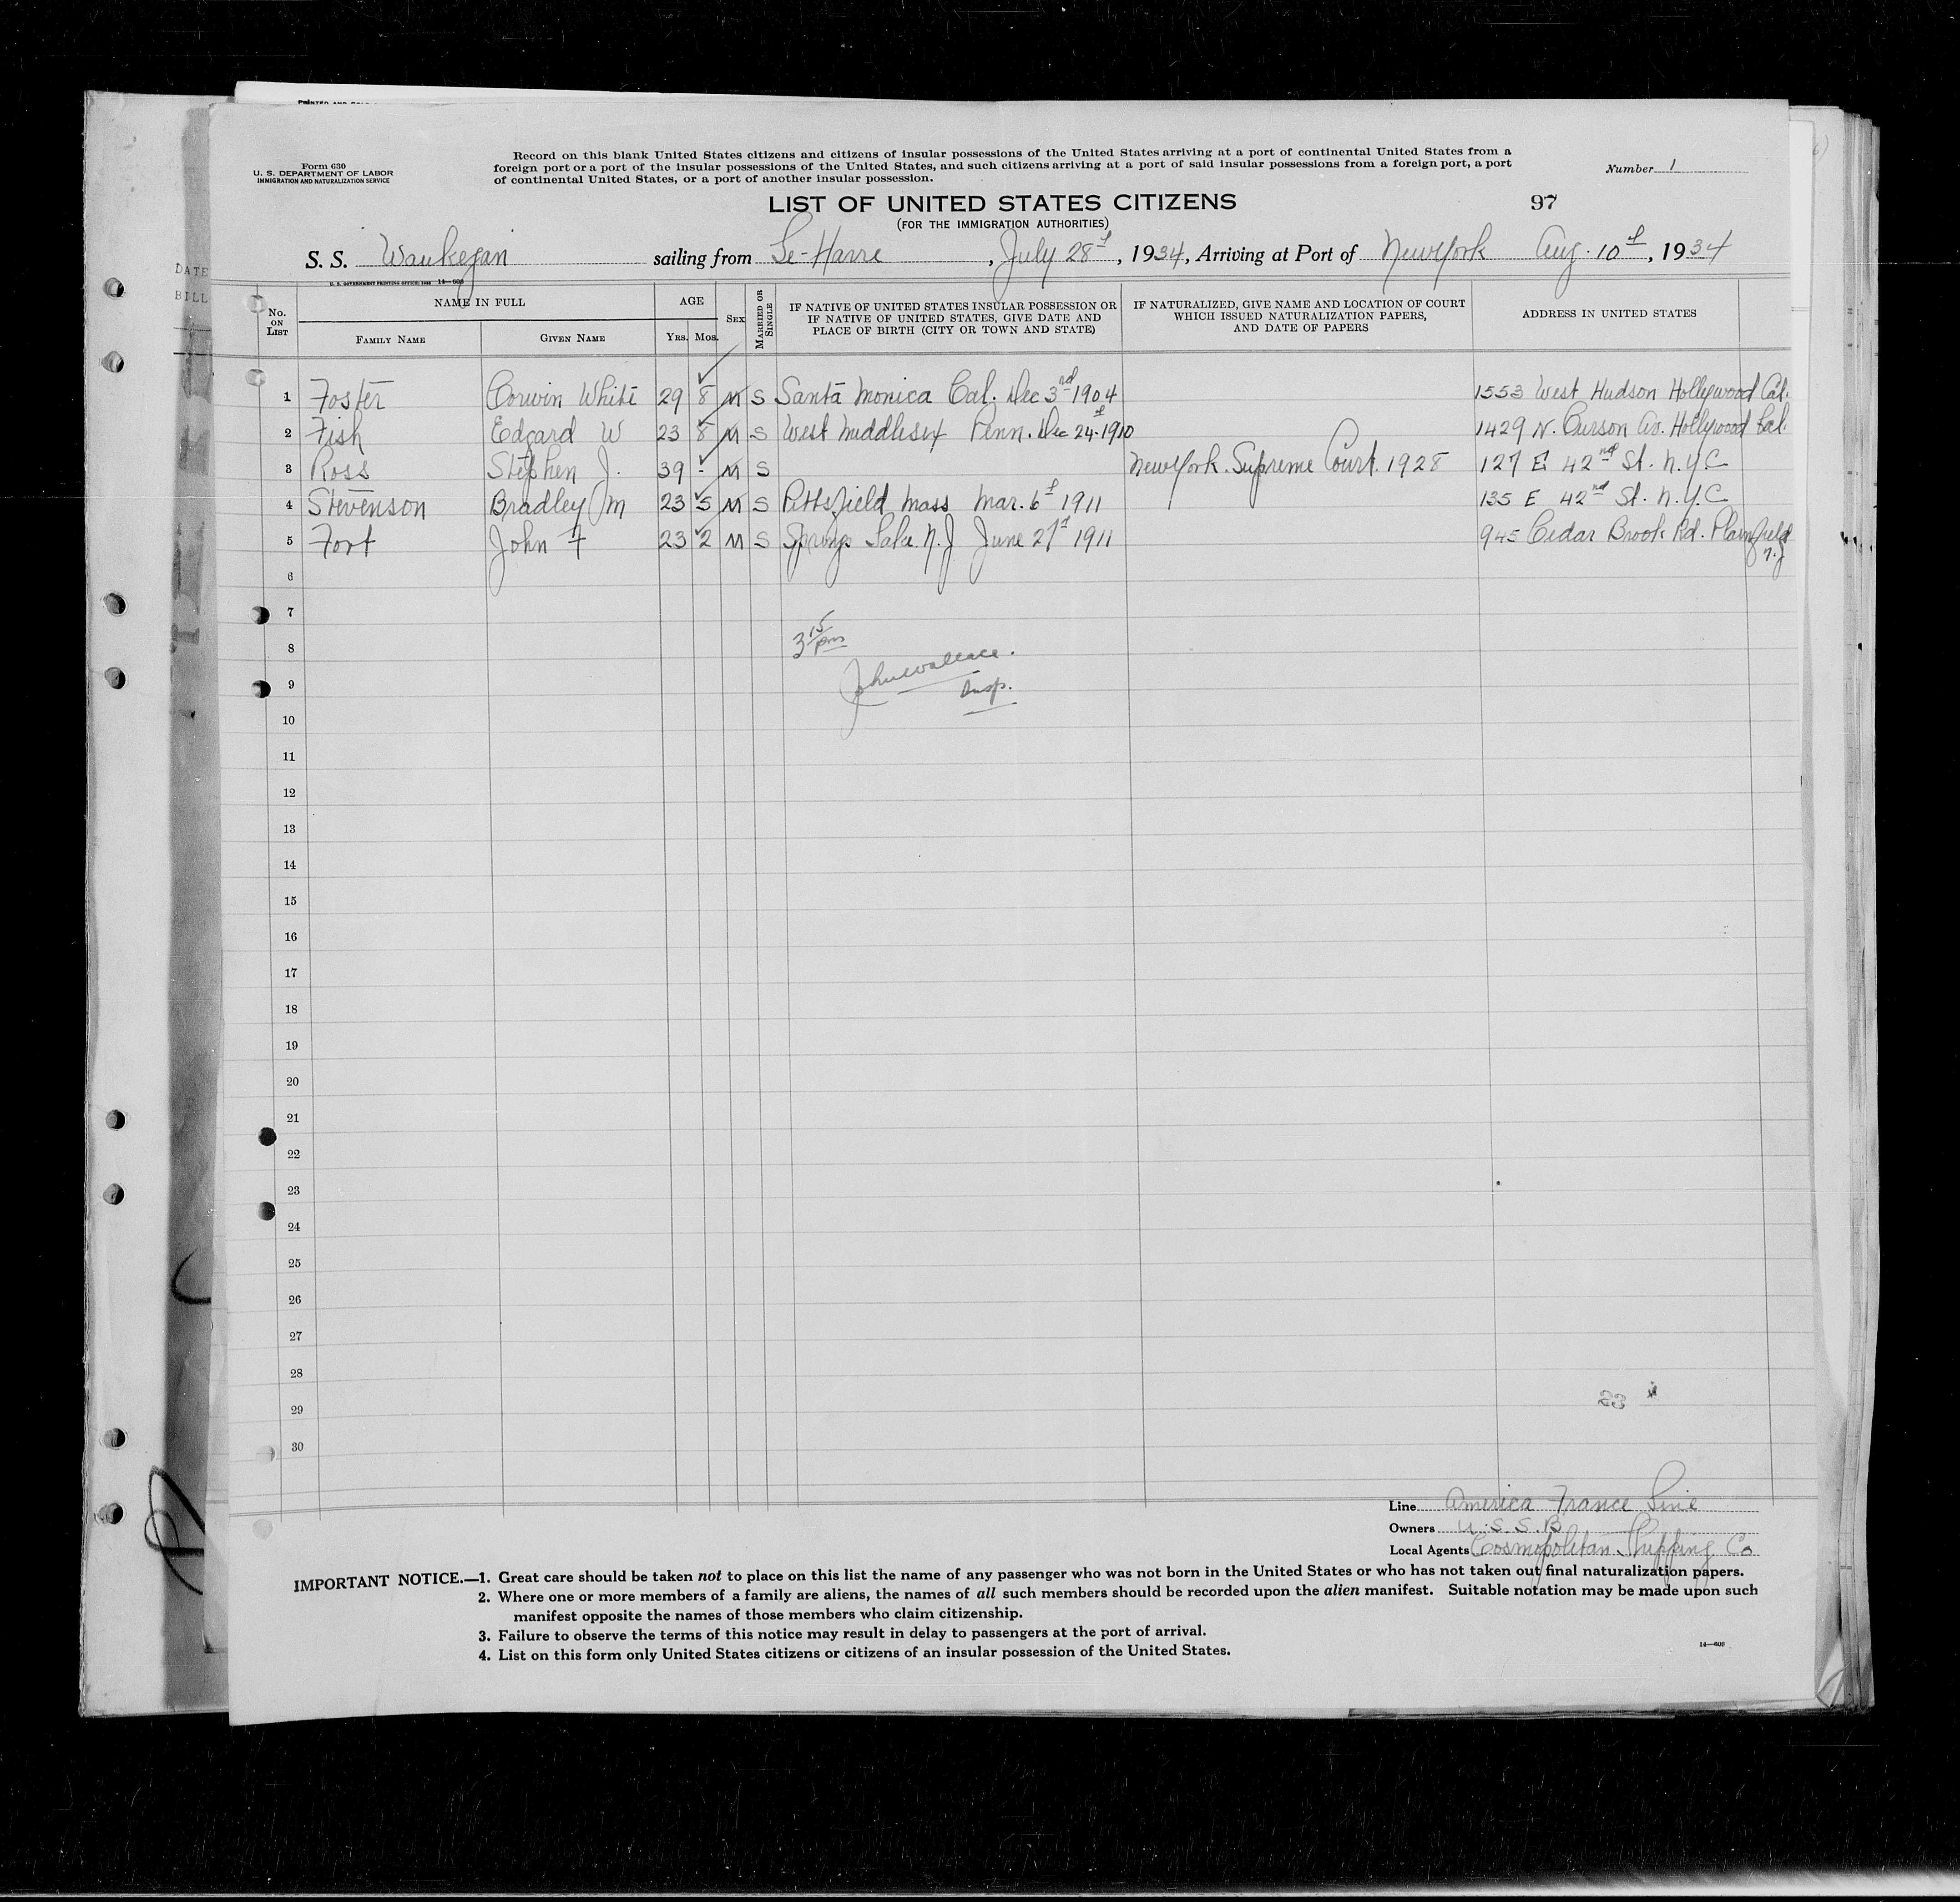 PRINTED AND SOLD
Form 630
U. S. DEPARTMENT OF LABOR
IMMIGRATION AND NATURALIZATION SERVICE
Record on this blank United States citizens and citizens of insular possessions of the United States arriving at a port of continental United States from a
foreign port or a port of the insular possessions of the United States, and such citizens arriving at a port of said insular possessions from a foreign port, a port
of continental United States, or a port of another insular possession.
Number 1
LIST OF UNITED STATES CITIZENS
97
(FOR THE IMMIGRATION AUTHORITIES)
S. S. Waukegan sailing from Le-Havre, July 28th, 1934, Arriving at Port of New York Aug. 10th, 1934
DATE
BILL
U. S. GOVERNMENT PRINTING OFFICE: 1933 14—608
No. ON LIST
NAME IN FULL
FAMILY NAME
GIVEN NAME
AGE
YRS. MOS.
SEX
MARRIED OR SINGLE
IF NATIVE OF UNITED STATES INSULAR POSSESSION OR
IF NATIVE OF UNITED STATES, GIVE DATE AND
PLACE OF BIRTH (CITY OR TOWN AND STATE)
IF NATURALIZED, GIVE NAME AND LOCATION OF COURT
WHICH ISSUED NATURALIZATION PAPERS,
AND DATE OF PAPERS
ADDRESS IN UNITED STATES
1 Foster Corwin White 29 8 M S Santa Monica Cal. Dec 3rd 1904 1553 West Hudson Hollywood Cal.
2 Fish Edgard W 23 8 M S West Middlesex Penn. Dec 24th 1910 1429 N. Curson Av. Hollywood Cal.
3 Ross Stephen J. 39 - M S New York Supreme Court 1928 127 E 42nd St. N.Y.C
4 Stevenson Bradley M 23 5 M S Pittsfield Mass Mar. 6th 1911 135 E 42nd St. N.Y.C
5 Fort John F 23 2 M S Springs Lake N.J June 27th 1911 945 Cedar Brook Rd. Plainfield
N.J
6
7
8
3 15 pm
John Wallace.
9
Insp.
10
11
12
13
14
15
16
17
18
19
20
21
22
23
24
25
26
27
28
29
23
30
Line America France Line
Owners U.S.S.B
Local Agents Cosmopolitan Shipping Co
IMPORTANT NOTICE.—1. Great care should be taken not to place on this list the name of any passenger who was not born in the United States or who has not taken out final naturalization papers.
2. Where one or more members of a family are aliens, the names of all such members should be recorded upon the alien manifest. Suitable notation may be made upon such
manifest opposite the names of those members who claim citizenship.
3. Failure to observe the terms of this notice may result in delay to passengers at the port of arrival.
4. List on this form only United States citizens or citizens of an insular possession of the United States.
14—608